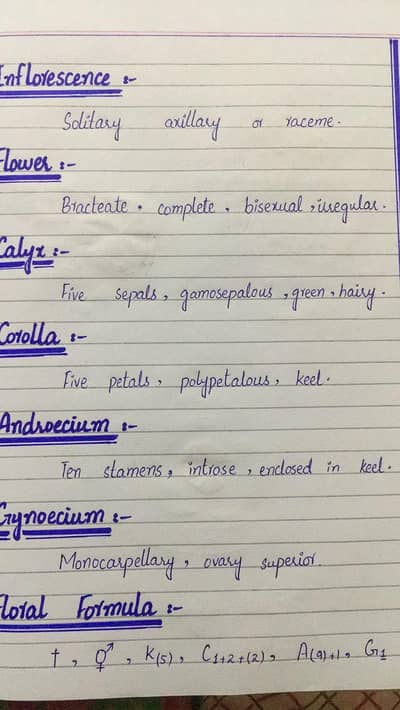 Inflorescence :-
Solitary axillary or raceme.
Flower :-
Bracteate. complete. bisexual, irregular.
Calyx :-
Five sepals, gamosepalous, green, hairy.
Corolla :-
Five petals, polypetalous, keel.
Androecium :-
Ten stamens, introse, enclosed in keel.
Gynoecium :-
Monocarpellary, ovary superior.
Floral Formula :-
†, ⚥, K(5), C1+2+(2), A(9)+1, G1